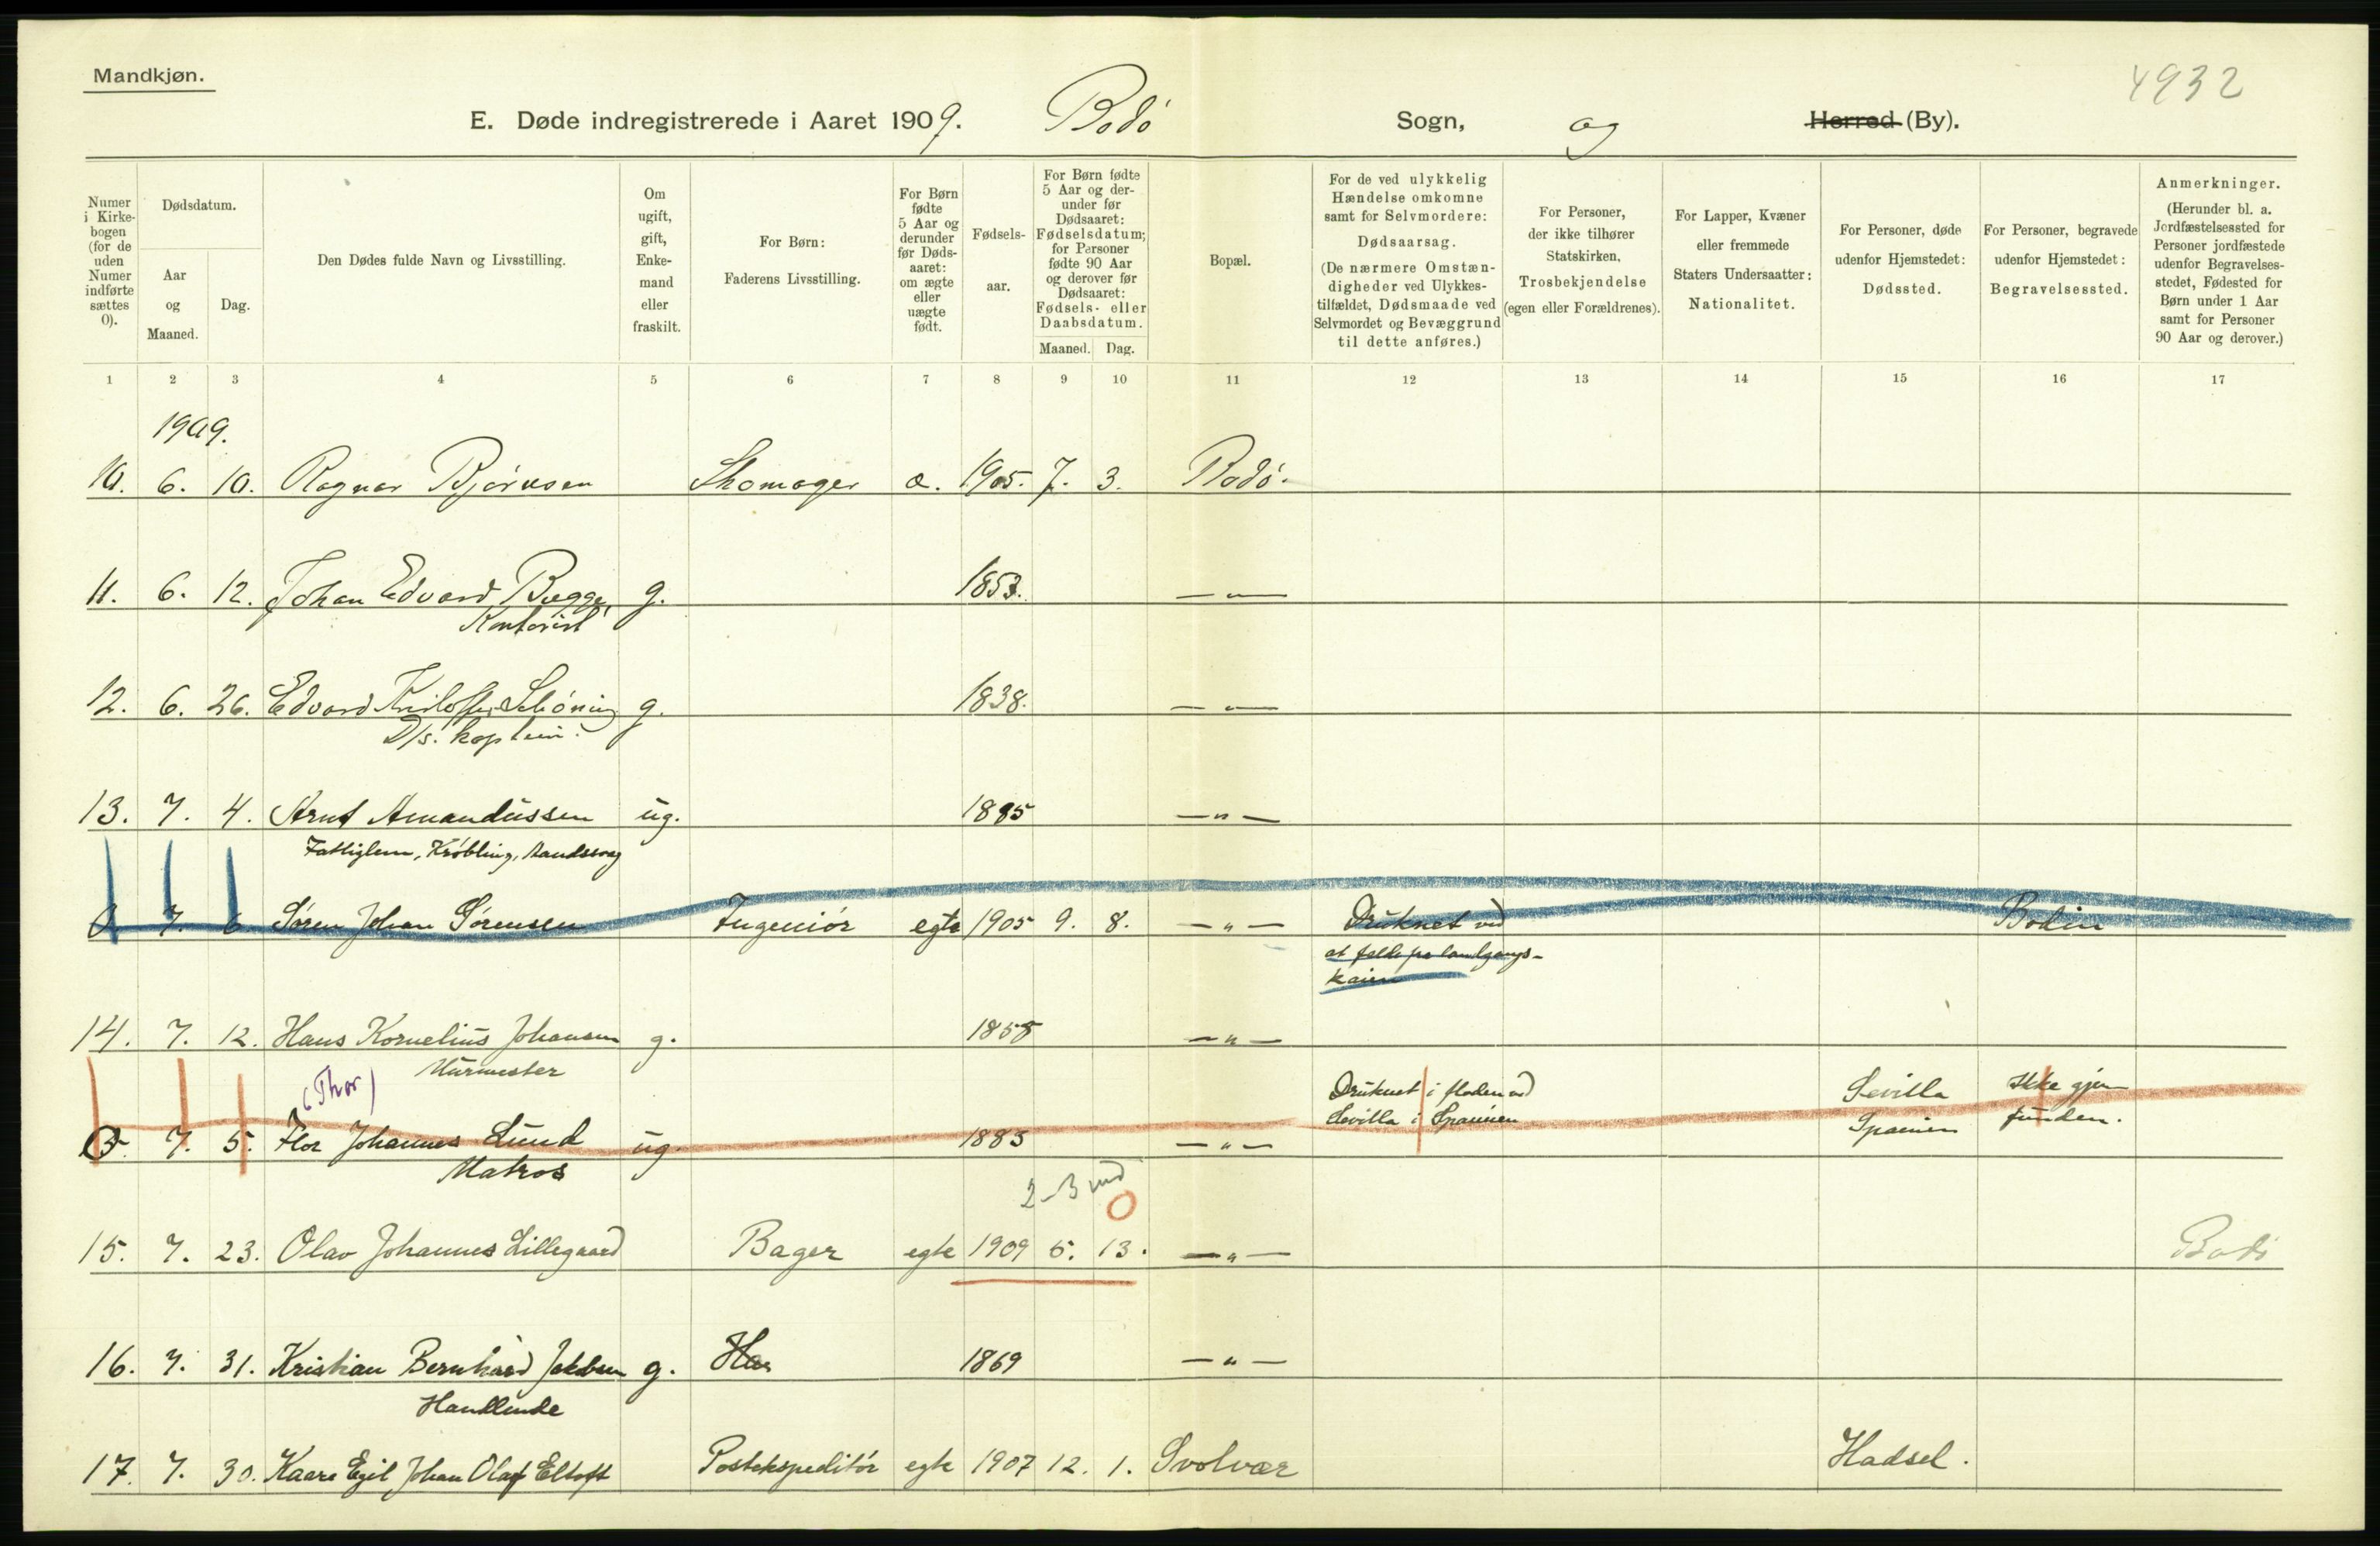 Mandkjøn.
4932
E. Døde indregistrerede i Aaret 1909. Bodø Sogn, og Herred (By).
Numer i Kirkebogen (for de uden Numer indførte sættes 0).
Dødsdatum.
Aar og Maaned.
Dag.
Den Dødes fulde Navn og Livsstilling.
Om ugift, gift, Enkemand eller fraskilt.
For Børn:
Faderens Livsstilling.
For Børn fødte 5 Aar og derunder før Dødsaaret: om ægte eller uægte født.
Fødselsaar.
For Børn fødte 5 Aar og derunder før Dødsaaret: Fødselsdatum; for Personer fødte 90 Aar og derover før Dødsaaret: Fødsels- eller Daabsdatum.
Maaned. Dag.
Bopæl.
For de ved ulykkelig Hændelse omkomne samt for Selvmordere:
Dødsaarsag.
(De nærmere Omstændigheder ved Ulykkestilfældet, Dødsmaade ved Selvmordet og Bevæggrund til dette anføres.)
For Personer, der ikke tilhører Statskirken,
Trosbekjendelse
(egen eller Forældrenes).
For Lapper, Kvæner eller fremmede Staters Undersaatter:
Nationalitet.
For Personer, døde udenfor Hjemstedet:
Dødssted.
For Personer, begravede udenfor Hjemstedet:
Begravelsessted.
Anmerkninger.
(Herunder bl. a. Jordfæstelsessted for Personer jordfæstede udenfor Begravelsesstedet, Fødested for Børn under 1 Aar samt for Personer 90 Aar og derover.)
1 2 3 4 5 6 7 8 9 10 11 12 13 14 15 16 17
1909.
10. 6. 10. Ragnar Bjørnsen Skomager æ. 1905. 7. 3. Bodø.
11. 6. 12. Johan Edvard Bugge, g. 1853. — " —
Kontorist
12. 6. 26. Edvard Kristoffer Schøning g. 1838. — " —
D/s. kaptein.
13. 7. 4. Arnt Amandussen ug. 1885 — " —
Fattiglem, Krøbling, Aandssvag
0 7. 6 Søren Johan Sørensen Ingeniør egte 1905 9. 8. — " — Druknet ved Bodin
at falde fra landgangs-
kaien
14. 7. 12. Hans Kornelius Johansen g. 1858 — " —
Murmester
(Thor)
Druknet i floden ved Sevilla Ikke gjen-
0 7. 5. Flor Johannes Lund ug. 1883 — " — Sevilla i Spanien Spanien funden.
Matros
2-3 md
0
15. 7. 23. Olav Johannes Lillegaard Bager egte 1909 5. 13. — " — Bodø
16. 7. 31. Kristian Bernhard Jakobsen g. Han 1869 — " —
Handlende
17. 7. 30. Kaare Egil Johan Olaf Eltoft Postekspeditør egte 1907 12. 1. Svolvær Hadsel.